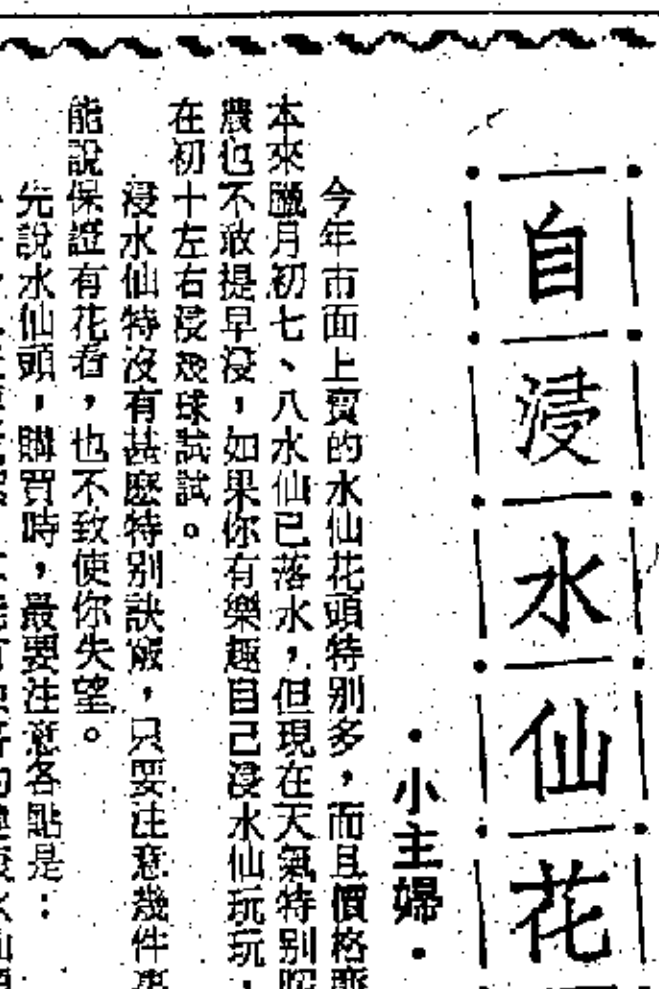 自浸水仙花
·小主婦·
今年市面上賣的水仙花頭特別多，而且價格
本來臘月初七、八水仙已落水，但現在天氣特別
農也不敢提早浸，如果你有樂趣自己浸水仙玩玩，
在初十左右浸幾球試試。
浸水仙特沒有甚麼特別訣竅，只要注意幾件事
能說保證有花看，也不致使你失望。
先說水仙頭，購買時，最要注意各點是：